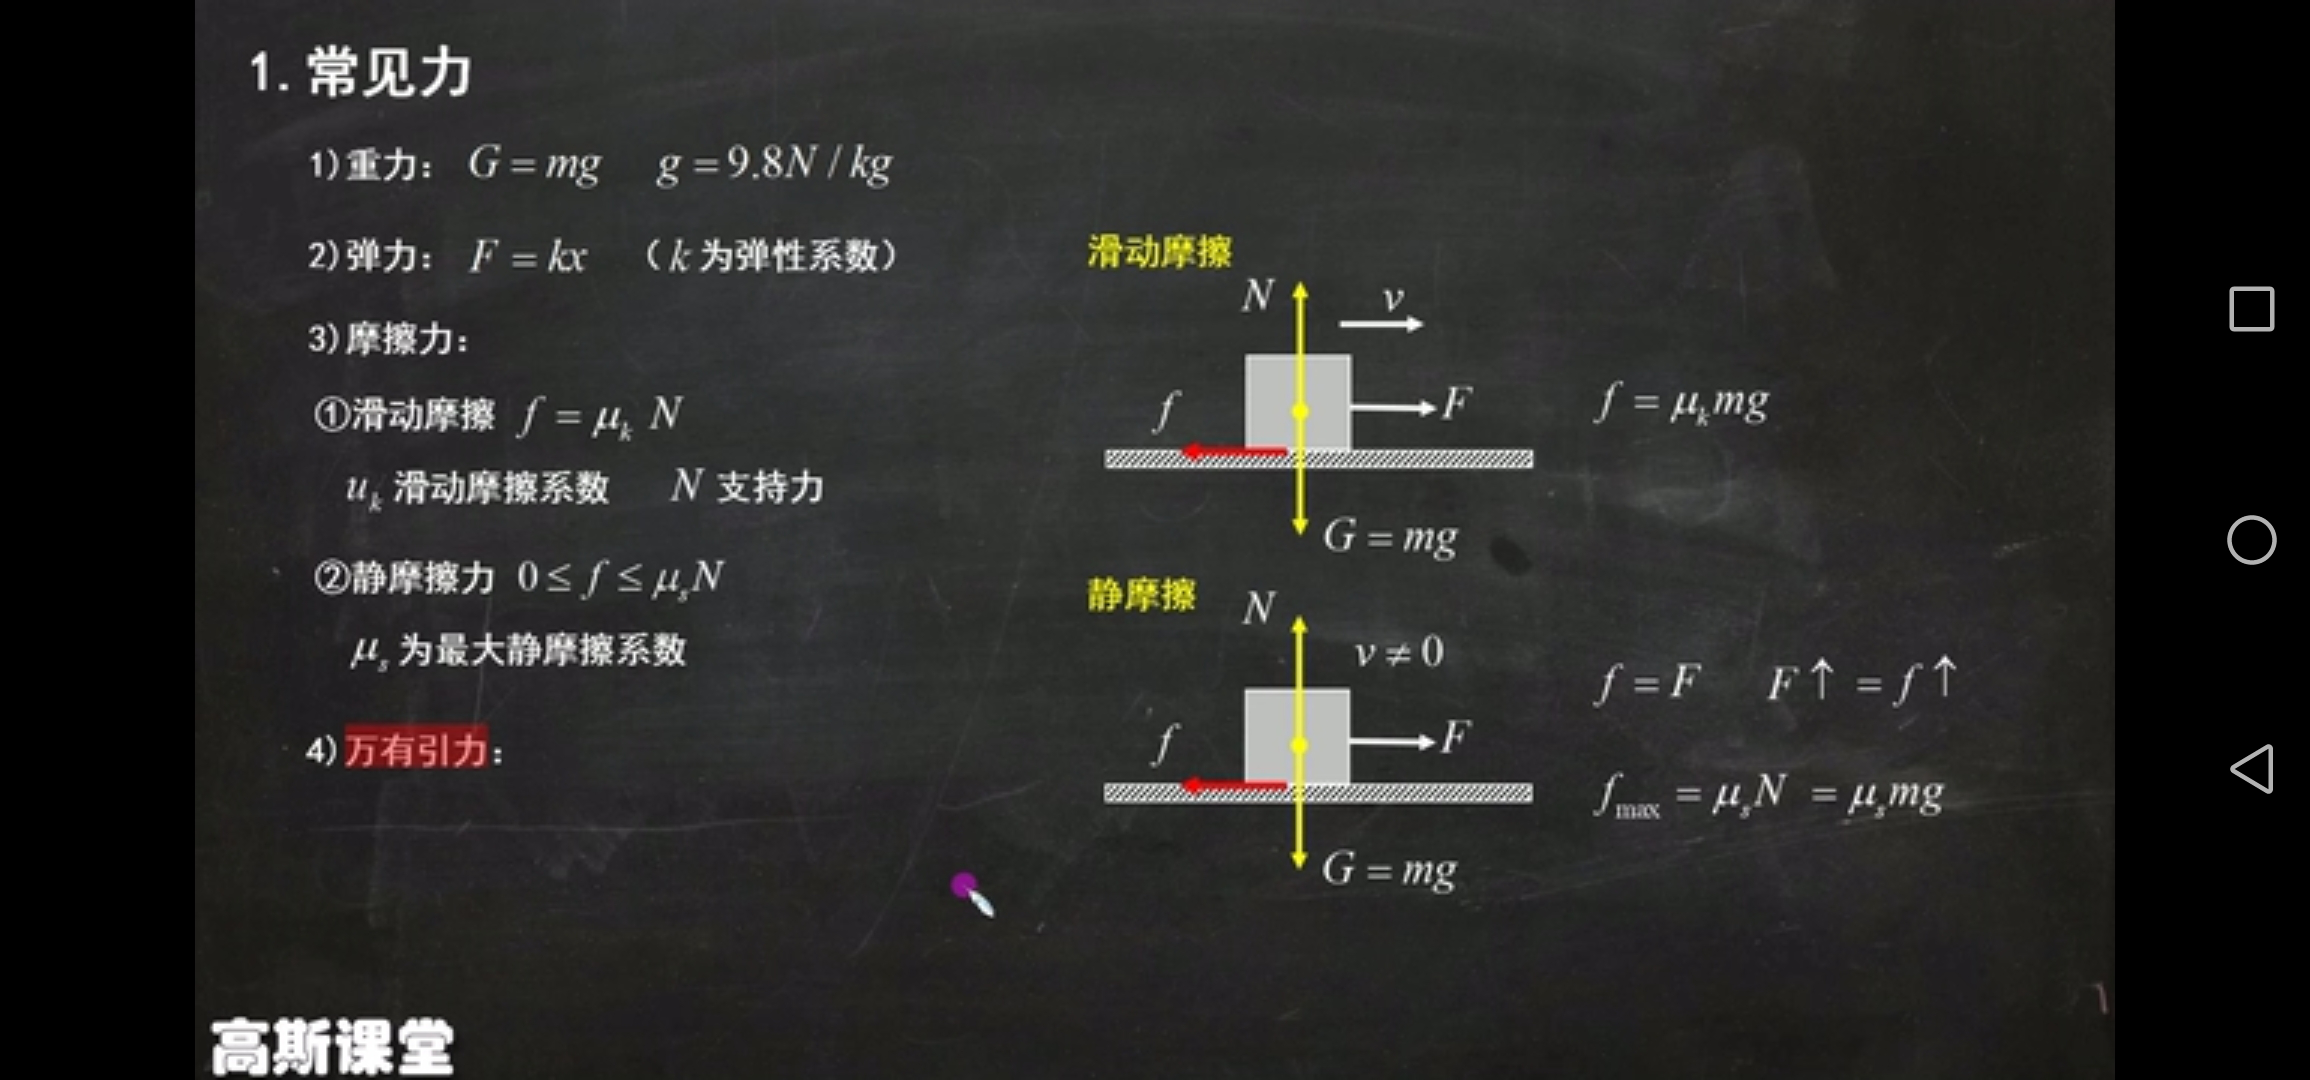 1. 常见力
1) 重力： G = mg g = 9.8N / kg
2) 弹力： F = kx （k 为弹性系数）
3) 摩擦力：
①滑动摩擦 f = μₖ N
uₖ 滑动摩擦系数 N 支持力
②静摩擦力 0 ≤ f ≤ μₛN
μₛ 为最大静摩擦系数
4) 万有引力：
滑动摩擦
N
v
f
F
f = μₖmg
G = mg
静摩擦
N
v ≠ 0
f = F F↑ = f↑
f
F
f_max = μₛN = μₛmg
G = mg
高斯课堂